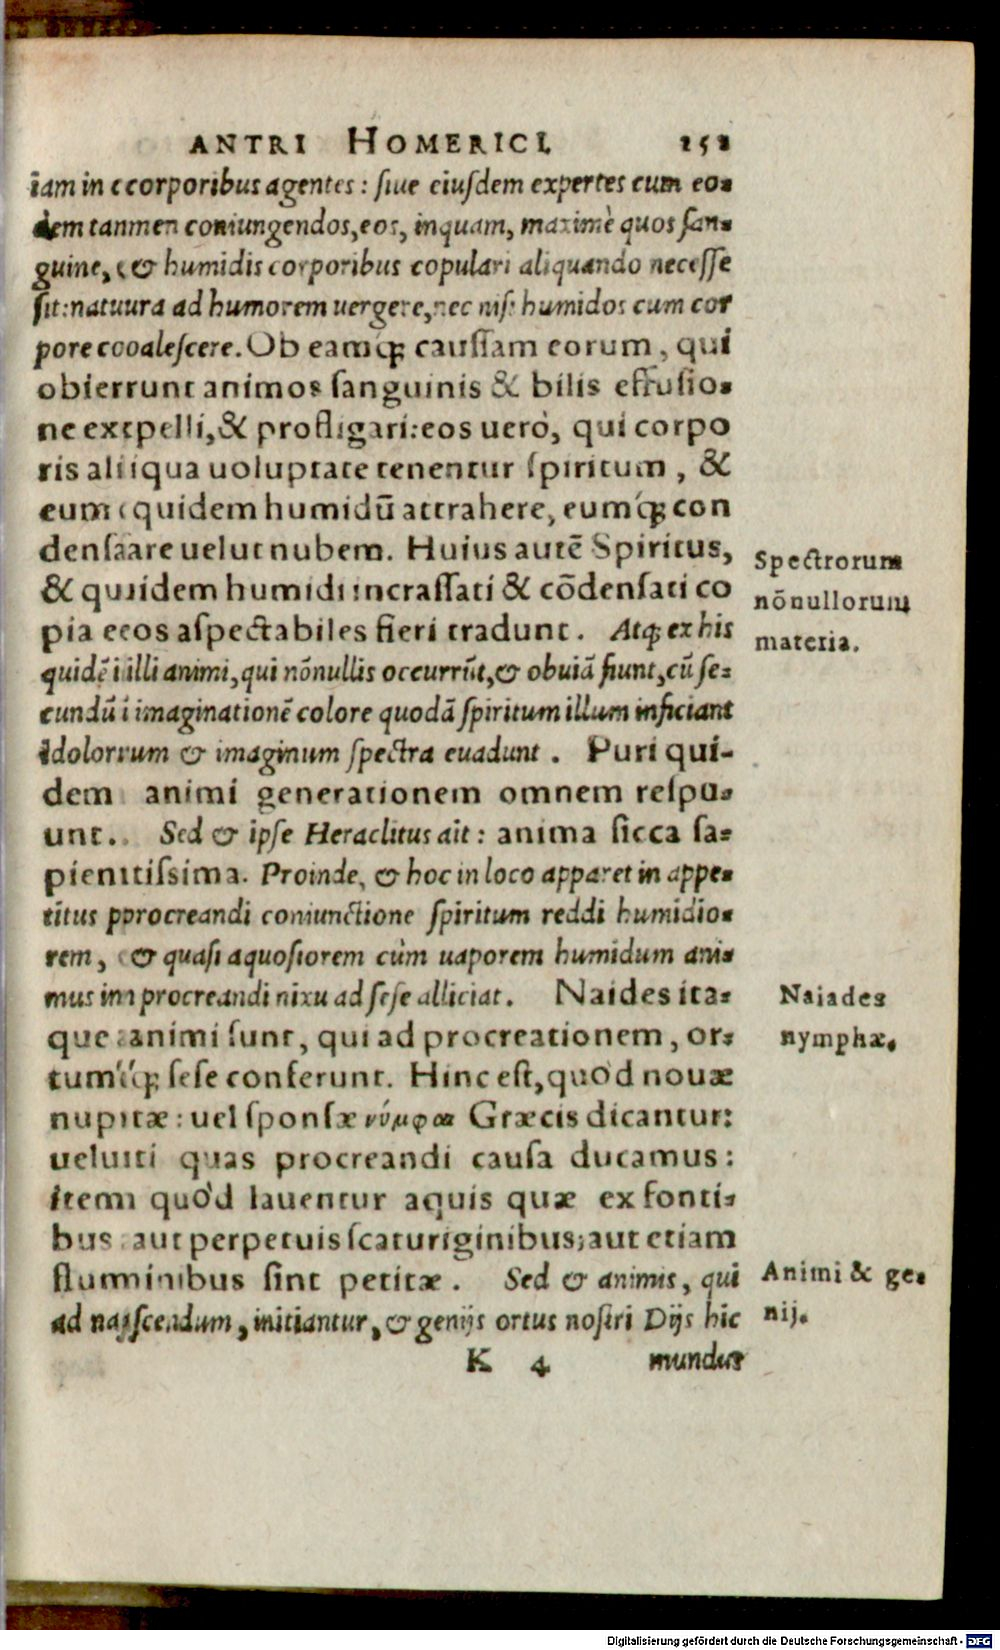 ANTRI HOMERICI. 151
iam in corporibus agentes: siue eiusdem expertes cum eo-
dem tamen coniungendos, eos, inquam, maximè quos san-
guine, & humidis corporibus copulari aliquando necesse
sit: natura ad humorem uergere, nec nisi humidos cum cor
pore coalescere. Ob eamq́; caussam eorum, qui
obierunt animos sanguinis & bilis effusio-
ne expelli, & profligari: eos uerò, qui corpo
ris aliqua uoluptate tenentur spiritum, &
eum quidem humidū attrahere, eumq́; con
densare uelut nubem. Huius autē Spiritus,
& quidem humidi incrassati & cōdensati co
pia eos aspectabiles fieri tradunt. Atq; ex his
quidē illi animi, qui nōnullis occurrūt, & obuiā fiunt, cū se-
cundū imaginationē colore quodā spiritum illum inficiant
Idolorum & imaginum spectra euadunt. Puri qui-
dem animi generationem omnem respu-
unt. Sed & ipse Heraclitus ait: anima sicca sa-
pientissima. Proinde, & hoc in loco apparet in appe-
titus procreandi coniunctione spiritum reddi humidio-
rem, & quasi aquosiorem cùm uaporem humidum ani-
mus in procreandi nixu ad sese alliciat. Naides ita-
que animi sunt, qui ad procreationem, or-
tumq́; sese conferunt. Hinc est, quòd nouæ
nuptæ: uel sponsæ νύμφαι Græcis dicantur:
ueluti quas procreandi causa ducamus:
item quòd lauentur aquis quæ ex fonti-
bus aut perpetuis scaturiginibus, aut etiam
fluminibus sint petitæ. Sed & animis, qui
ad nascendum, initiantur, & genijs ortus nostri Dijs hic
K 4 mundus
Spectrorum
nōnullorum
materia.
Naiades
nymphæ.
Animi & ge-
nij.
Digitalisierung gefördert durch die Deutsche Forschungsgemeinschaft - DFG